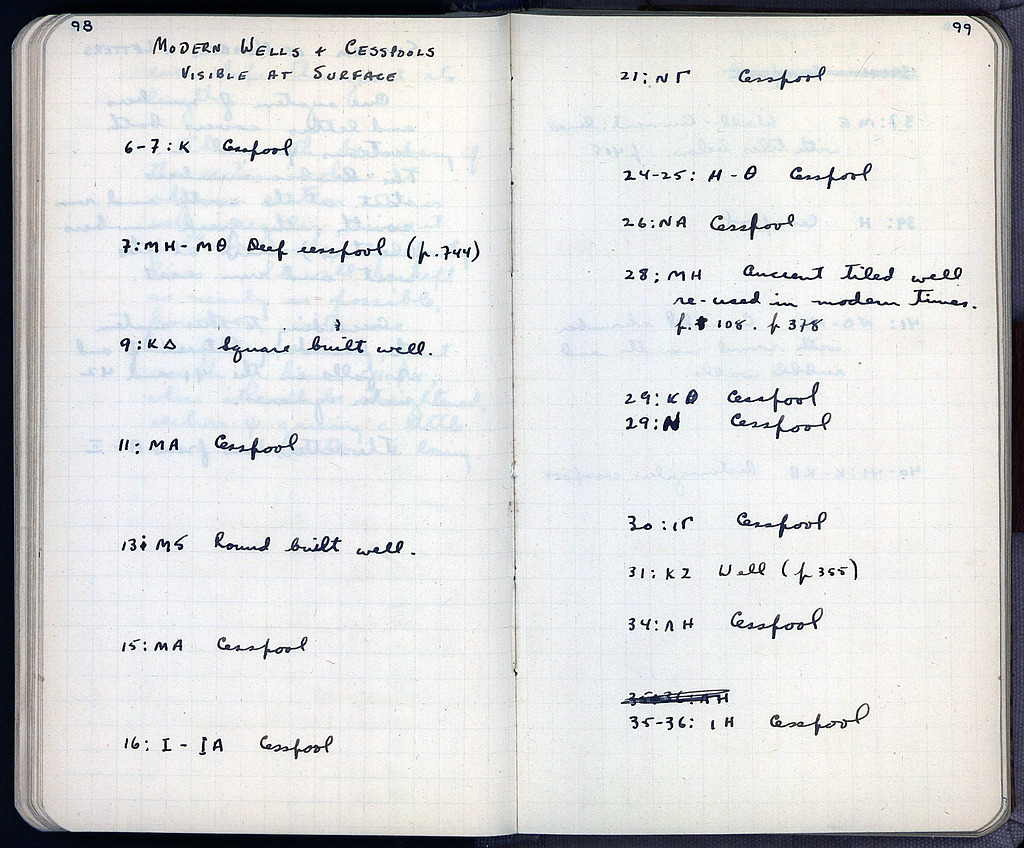 98
MODERN WELLS & CESSPOOLS
VISIBLE AT SURFACE
6-7: K Cesspool
7: ΜΗ-ΜΘ Deep cesspool (p. 744)
9: ΚΔ Square built well.
11: ΜΑ Cesspool
13: ΜS Round built well.
15: ΜΑ Cesspool
16: Ι-ΙΑ Cesspool
99
21: ΝΓ Cesspool
24-25: Η-Θ Cesspool
26: ΝΑ Cesspool
28: ΜΗ Ancient tiled well
re-used in modern times.
p. 108. p 378
29: ΚΘ Cesspool
29: Ν Cesspool
30: ΙΓ Cesspool
31: ΚΖ Well (p 355)
34: ΛΗ Cesspool
35-36: ΙΗ Cesspool